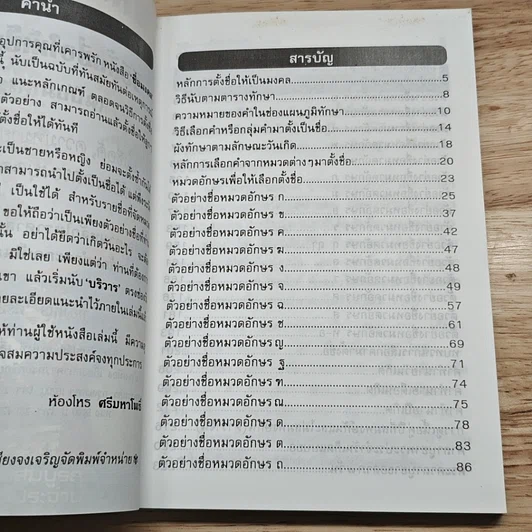 คำนำ
อุปการคุณที่เคารพรัก หนังสือ
นี้ นับเป็นฉบับที่ทันสมัย
แนะหลักเกณฑ์ ตลอดจนวิธีการ
ตัวอย่าง สามารถอ่านแล้วตั้งชื่อ
ตั้งชื่อให้ได้ทันที
เป็นชายหรือหญิง ย่อมจะตั้งชื่อ
สามารถนำไปตั้งเป็นชื่อได้
เป็นใช้ได้ สำหรับรายชื่อที่
ขอให้ถือว่าเป็นเพียงตัวอย่างชื่อ
นั้น อย่าได้ยึดว่าเกิดวันอะไร
มิใช่เลย เพียงแต่ว่า ท่านที่ต้อง
เขา แล้วเริ่มนับ 'บริวาร'
ละเอียดแนะนำไว้ภายในเล่ม
ให้ท่านผู้ใช้หนังสือเล่มนี้
สมความประสงค์จงทุกประการ
ห้องโหร ศรีมหาโพธิ์
จงเจริญจัดพิมพ์จำหน่าย
สารบัญ
หลักการตั้งชื่อให้เป็นมงคล.....5
วิธีนับตามตารางทักษา.....8
ความหมายของคำในช่องแผนภูมิทักษา.....10
วิธีเลือกคำหรือกลุ่มคำมาตั้งเป็นชื่อ.....14
ผังทักษาตามลักษณะวันเกิด.....18
หลักการเลือกคำจากหมวดต่างๆมาตั้งชื่อ.....20
หมวดอักษรเพื่อให้เลือกตั้งชื่อ.....23
ตัวอย่างชื่อหมวดอักษร ก.....25
ตัวอย่างชื่อหมวดอักษร ข.....37
ตัวอย่างชื่อหมวดอักษร ค.....42
ตัวอย่างชื่อหมวดอักษร ฆ.....47
ตัวอย่างชื่อหมวดอักษร ง.....48
ตัวอย่างชื่อหมวดอักษร จ.....49
ตัวอย่างชื่อหมวดอักษร ฉ.....57
ตัวอย่างชื่อหมวดอักษร ช.....61
ตัวอย่างชื่อหมวดอักษร ญ.....69
ตัวอย่างชื่อหมวดอักษร ฐ.....71
ตัวอย่างชื่อหมวดอักษร ฑ.....74
ตัวอย่างชื่อหมวดอักษร ณ.....75
ตัวอย่างชื่อหมวดอักษร ด.....78
ตัวอย่างชื่อหมวดอักษร ต.....83
ตัวอย่างชื่อหมวดอักษร ถ.....86